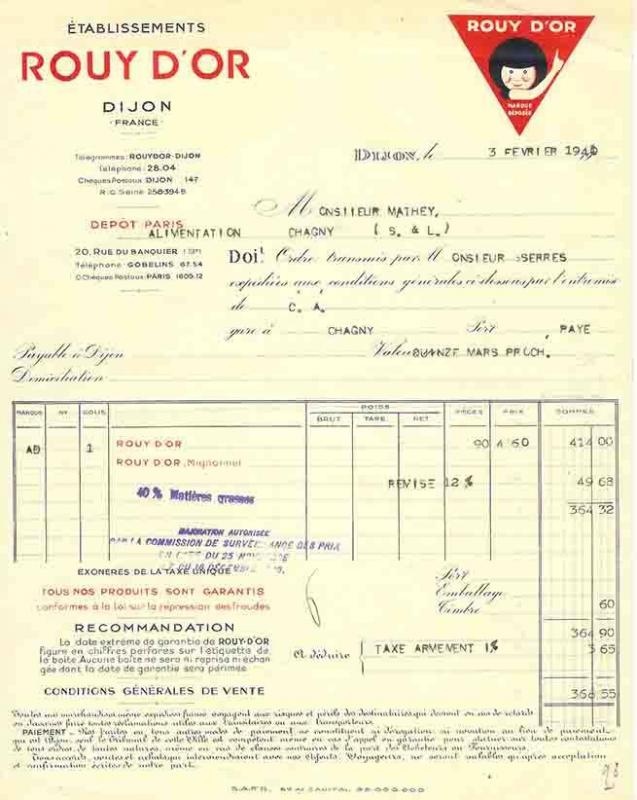 ÉTABLISSEMENTS
ROUY D'OR
DIJON
FRANCE
ROUY D'OR
MARQUE
DÉPOSÉE
Télégrammes: ROUYDOR-DIJON
Téléphone: 28.04
Chèques Postaux DIJON 147
R.C. Seine
DIJON, le 3 FEVRIER 194
MONSIIEUR MATHEY,
DEPÔT PARIS
ALIMENTATION CHAGNY ( S. & L.)
20, RUE DU BANQUIER
Téléphone: GOBELINS 67.54
C.Chèques Postaux: PARIS 1609.12
Doit Ordre transmis par MONSIEUR SERRES
expédiées aux conditions générales ci-dessous par l'entremise
de C. A.
gare à CHAGNY Port PAYE
Payable à Dijon Valeur QUINZE MARS PROCH.
Domiciliation
MARQUE No COLIS POIDS PIECES PRIX SOMMES
BRUT TARE NET
AD 1 ROUY D'OR 90 4 60 414 00
ROUY D'OR, Mignonnet
REMISE 12 % 49 68
40 % Matières grasses
364 32
MAJORATION AUTORISÉE
PAR LA COMMISSION DE SURVEILLANCE DES PRIX
EN DATE DU 25 NOV
EXONERES DE LA TAXE UNIQUE
TOUS NOS PRODUITS SONT GARANTIS
conformes à la loi sur la répression des fraudes
Port
Emballage
Timbre 60
RECOMMANDATION
364 90
La date extrême de garantie de ROUY-D'OR
figure en chiffres perforés sur l'étiquette de
la boîte. Aucune boîte ne sera ni reprise ni échan
gée dont la date de garantie sera périmée.
A déduire TAXE ARMEMENT 1% 3 65
CONDITIONS GÉNÉRALES DE VENTE
Toutes nos marchandises même expédiées franco voyagent aux risques et périls des destinataires qui devront en cas de retards
ou d'avaries faire toutes réclamations utiles aux Transitaires ou aux transporteurs.
PAIEMENT - Nos traites ou tous autres modes de paiement ne constituent ni dérogation, ni novation au lieu de paiement
qui est Dijon, seul le Tribunal de cette Ville est compétent même en cas d'appel en garantie pour statuer sur toutes contestations
de tous ordres, de toutes natures, même en cas de clauses contraires de la part des Acheteurs ou Fournisseurs.